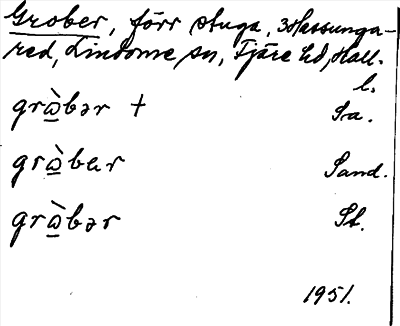 Grober, förr stuga, 3 Hassunga-
red, Lindome sn, Fjäre hd, Hall.
l.
grὼ̲bər + Sa.
grὼ̲bər Sand.
grὼ̲bər St.
1951.